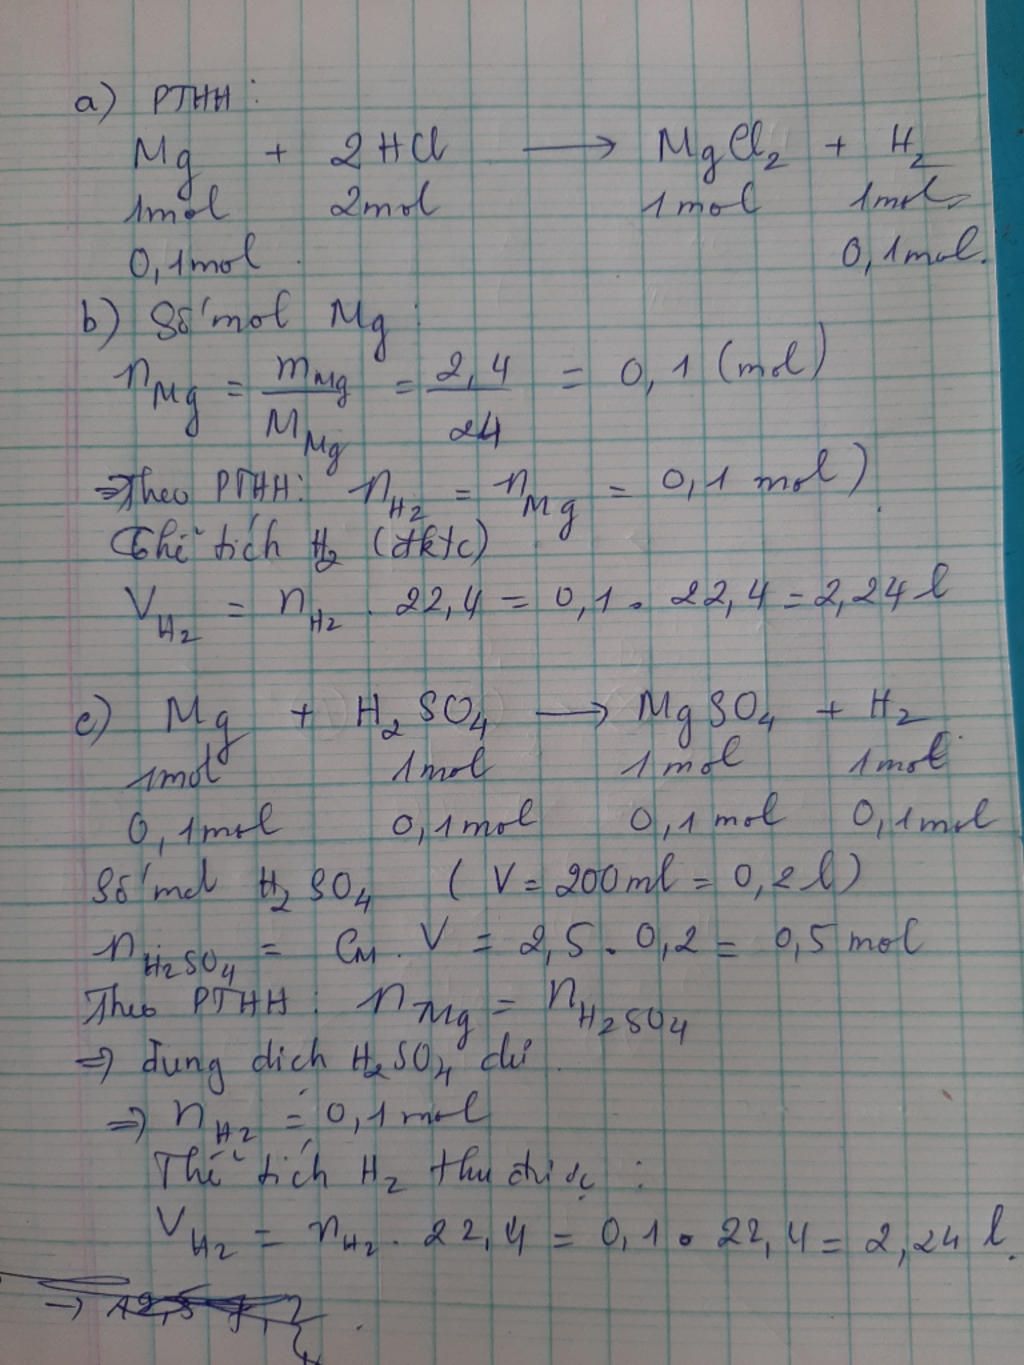 a) PTHH:
Mg + 2HCl → MgCl₂ + H₂
1mol 2mol 1mol 1mol
0,1mol 0,1mol.
b) Số mol Mg:
nMg = mMg/MMg = 2,4/24 = 0,1 (mol)
⇒ Theo PTHH: nH₂ = nMg = 0,1 mol)
Thể tích H₂ (đktc)
VH₂ = nH₂ . 22,4 = 0,1 . 22,4 = 2,24 l
c) Mg + H₂SO₄ → MgSO₄ + H₂
1mol 1mol 1mol 1mol
0,1mol 0,1mol 0,1mol 0,1mol
Số mol H₂SO₄ (V = 200ml = 0,2l)
nH₂SO₄ = CM . V = 2,5 . 0,2 = 0,5 mol
Theo PTHH: nMg = nH₂SO₄
⇒ dung dich H₂SO₄ dư.
⇒ nH₂ = 0,1mol
Thể tích H₂ thu được:
VH₂ = nH₂ . 22,4 = 0,1 . 22,4 = 2,24 l.